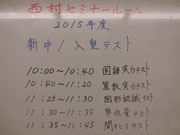 西村セミナールーム
2015年度
新中1入塾テスト
10:00〜10:40 国語実力テスト
10:40〜11:20 算数実力テスト
11:25〜11:30 図形認識テスト
11:30〜11:35 単位量テスト
11:35〜11:45 聞きとりテスト